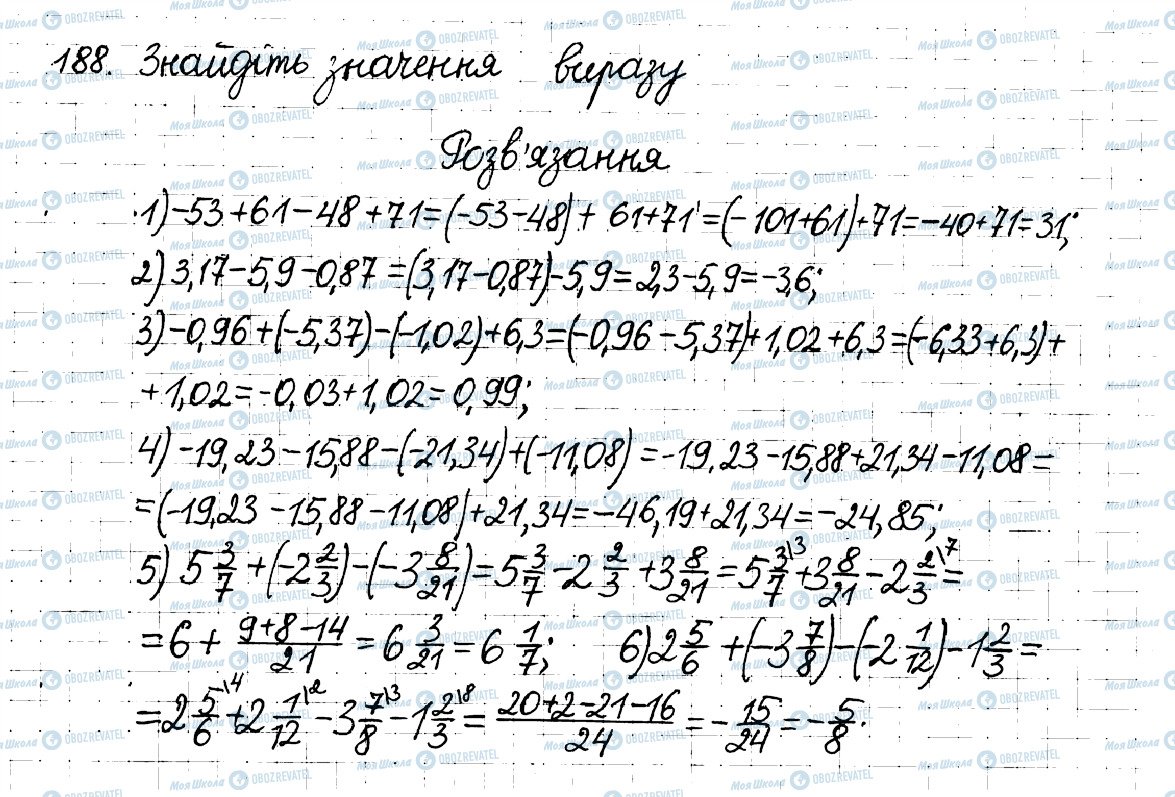 188. Знайдіть значення виразу
Розв'язання
1) -53+61-48+71=(-53-48)+ 61+71=(-101+61)+71=-40+71=31;
2) 3,17-5,9-0,87=(3,17-0,87)-5,9=2,3-5,9=-3,6;
3) -0,96+(-5,37)-(-1,02)+6,3=(-0,96-5,37)+1,02+6,3=(-6,33+6,3)+
+1,02=-0,03+1,02=0,99;
4) -19,23-15,88-(-21,34)+(-11,08)=-19,23-15,88+21,34-11,08=
=(-19,23-15,88-11,08)+21,34=-46,19+21,34=-24,85;
5) 5 3/7+(-2 2/3)-(-3 8/21)=5 3/7-2 2/3+3 8/21=5 3/7\3+3 8/21-2 2/3\7=
=6+ (9+8-14)/21=6 3/21=6 1/7; 6) 2 5/6+(-3 7/8)-(-2 1/12)-1 2/3=
=2 5/6\4+2 1/12\2-3 7/8\3-1 2/3\8= (20+2-21-16)/24=-15/24=-5/8.
МояШкола OBOZREVATEL